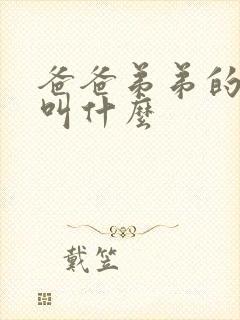 爸爸弟弟的
叫什麼
戴笠